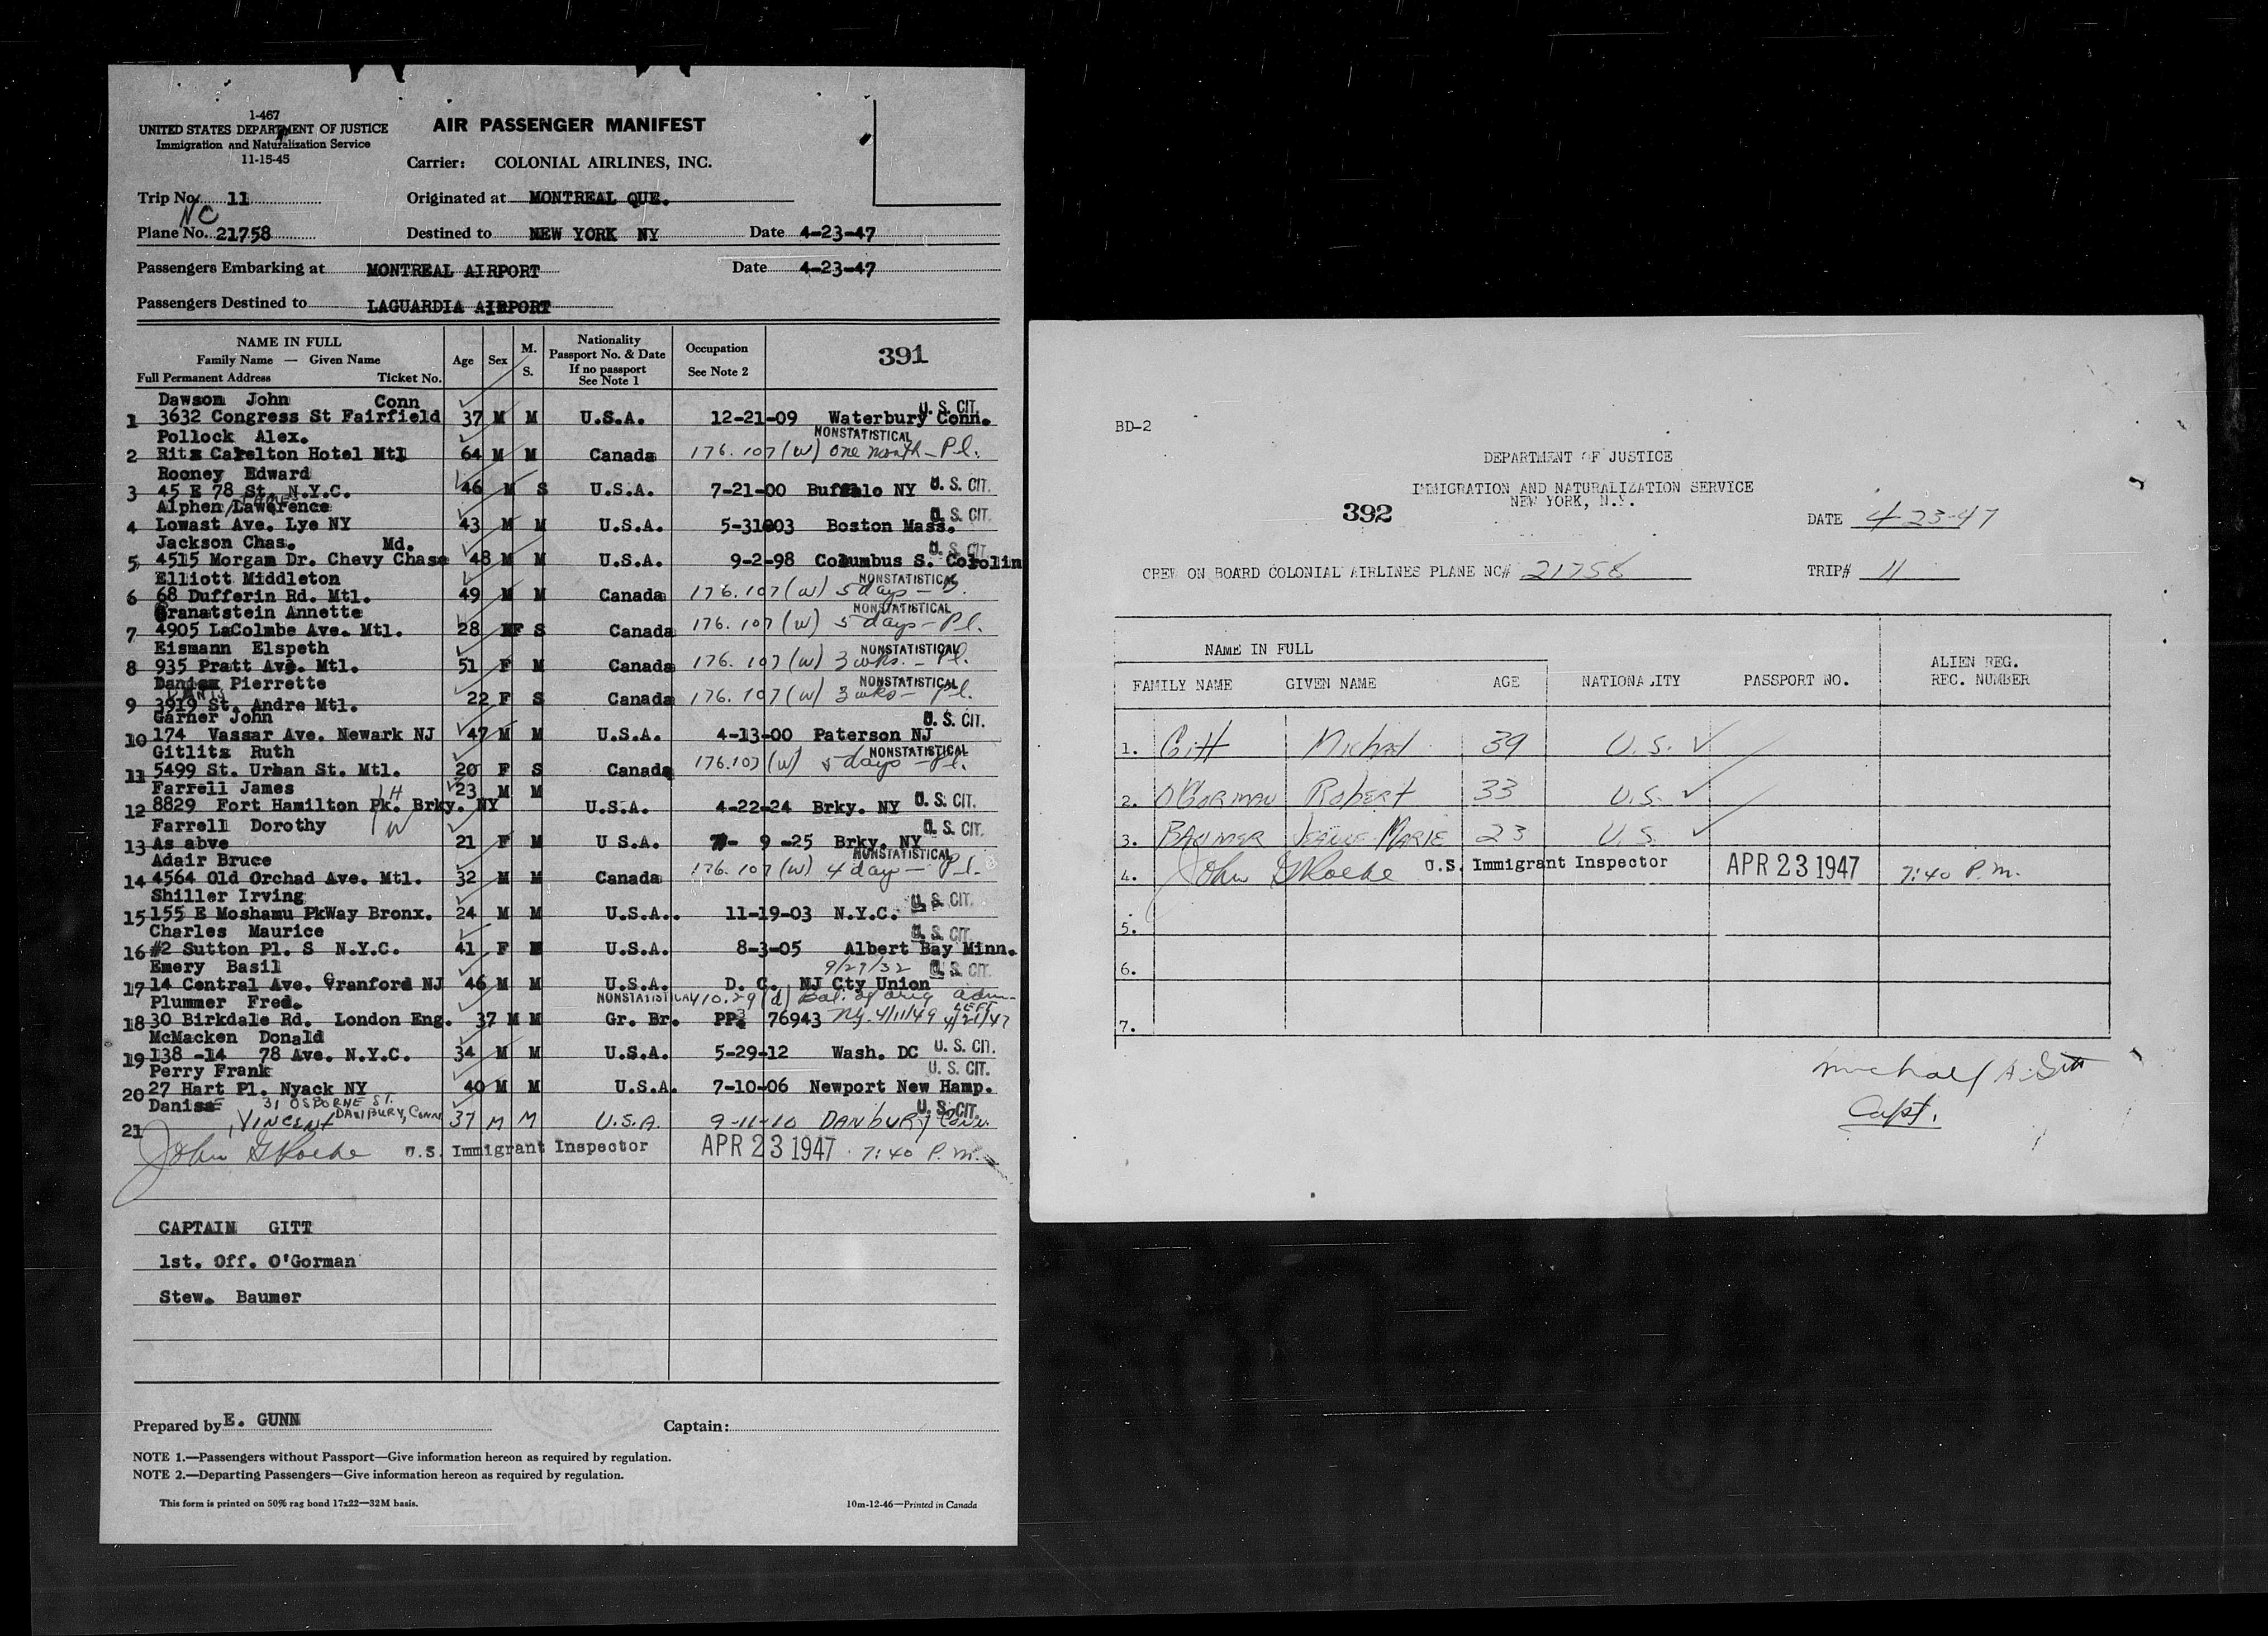 1-467
UNITED STATES DEPARTMENT OF JUSTICE
Immigration and Naturalization Service
11-15-45
AIR PASSENGER MANIFEST
Carrier: COLONIAL AIRLINES, INC.
Trip No. 11
Originated at MONTREAL QUE.
NC
Plane No. 21758
Destined to NEW YORK NY Date 4-23-47
Passengers Embarking at MONTREAL AIRPORT Date 4-23-47
Passengers Destined to LAGUARDIA AIRPORT
NAME IN FULL
Family Name — Given Name
Full Permanent Address Ticket No.
Age Sex M. S.
Nationality
Passport No. & Date
If no passport
See Note 1
Occupation
See Note 2
391
Dawson John Conn U. S. CIT.
1 3632 Congress St Fairfield 37 M M U.S.A. 12-21-09 Waterbury Conn.
Pollock Alex. NONSTATISTICAL
2 Ritz Carelton Hotel Mtl 64 M M Canada 176.107 (w) one month - Pl.
Rooney Edward
3 45 E 78 St. N.Y.C. 46 M S U.S.A. 7-21-00 Buffalo NY U. S. CIT.
Alphen Lawrence U. S. CIT.
4 Lowast Ave. Lye NY 43 M M U.S.A. 5-31-03 Boston Mass.
Jackson Chas. Md. U. S. CIT.
5 4515 Morgan Dr. Chevy Chase 48 M M U.S.A. 9-2-98 Columbus S. Corolin
Elliott Middleton NONSTATISTICAL
6 68 Dufferin Rd. Mtl. 49 M M Canada 176.107 (w) 5 days - B.
Granatstein Annette NONSTATISTICAL
7 4905 LaColmbe Ave. Mtl. 28 F S Canada 176.107 (w) 5 days - Pl.
Eismann Elspeth NONSTATISTICAL
8 935 Pratt Ave. Mtl. 51 F M Canada 176.107 (w) 3 wks. - Pl.
Pierrette NONSTATISTICAL
9 3919 St. Andre Mtl. 22 F S Canada 176.107 (w) 3 wks - Pl.
Garner John U. S. CIT.
10 174 Vassar Ave. Newark NJ 47 M M U.S.A. 4-13-00 Paterson NJ
Gitlitz Ruth NONSTATISTICAL
11 5499 St. Urban St. Mtl. 20 F S Canada 176.107 (w) 5 days - Pl.
Farrell James H 23 M M
12 8829 Fort Hamilton Pk. Brky. NY U.S.A. 4-22-24 Brky. NY U. S. CIT.
Farrell Dorothy W U. S. CIT.
13 As abve 21 F M U S.A. 9 -25 Brky. NY
Adair Bruce NONSTATISTICAL
14 4564 Old Orchad Ave. Mtl. 32 M M Canada 176.107 (w) 4 days - Pl.
Shiller Irving
15 155 E Moshamu PkWay Bronx. 24 M M U.S.A.. 11-19-03 N.Y.C. U. S. CIT.
Charles Maurice U. S. CIT.
16 #2 Sutton Pl. S N.Y.C. 41 F U.S.A. 8-3-05 Albert Bay Minn.
Emery Basil 9/27/32 U. S. CIT.
17 14 Central Ave. Cranford NJ 46 M M U.S.A. D. C. NJ Cty Union
Plummer Fred. NONSTATISTICAL 410.29 (d) Bal. of orig adm.
18 30 Birkdale Rd. London Eng. 37 M M Gr. Br. PP. 76943 Ny. 4/11/49 LEFT 4/21/47
McMacken Donald
19 138 -14 78 Ave. N.Y.C. 34 M M U.S.A. 5-29-12 Wash. DC U. S. CIT.
Perry Frank U. S. CIT.
20 27 Hart Pl. Nyack NY 40 M M U.S.A. 7-10-06 Newport New Hamp.
Danise 31 OSBORNE ST. U. S. CIT.
21 , VINCENT DANBURY, CONN 37 M M U.S.A. 9-11-10 DANBURY Conn.
John G Roche U.S. Immigrant Inspector APR 23 1947 7:40 P.M.
CAPTAIN GITT
1st. Off. O'Gorman
Stew. Baumer
Prepared by E. GUNN Captain:
NOTE 1.—Passengers without Passport—Give information hereon as required by regulation.
NOTE 2.—Departing Passengers—Give information hereon as required by regulation.
This form is printed on 50% rag bond 17x22—32M basis. 10m-12-46—Printed in Canada
BD-2
DEPARTMENT OF JUSTICE
IMMIGRATION AND NATURALIZATION SERVICE
NEW YORK, N.Y.
392
DATE 4-23-47
CREW ON BOARD COLONIAL AIRLINES PLANE NC# 21758 TRIP# 11
NAME IN FULL
FAMILY NAME GIVEN NAME AGE NATIONALITY PASSPORT NO. ALIEN REG. REC. NUMBER
1. Gitt Michael 39 U.S.
2. O'GORMAN ROBERT 33 U.S.
3. BAUMER JEANNE MARIE 23 U.S.
4. John G Roche U.S. Immigrant Inspector APR 23 1947 7:40 P.M.
5.
6.
7.
Michael A. Gitt
Capt.